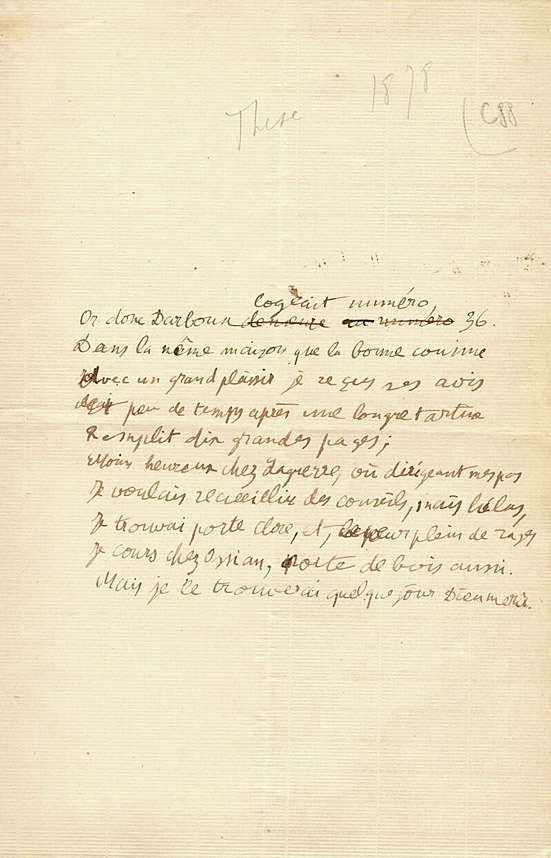 These
1878
C88
logeait numéro,
Or donc Darboux demeure au numéro 36.
Dans la même maison que la bonne cousine
Avec un grand plaisir je reçus ses avis
peu de temps après une longue tartine
Remplit dix grandes pages;
Moins heureux chez Laguerre, où dirigeant mes pas
Je voulais recueillir des conseils, mais hélas,
Je trouvai porte close, et, le cœur plein de rage
Je cours chez Ossian, porte de bois aussi.
Mais je le trouverai quelque jour Dieu merci.